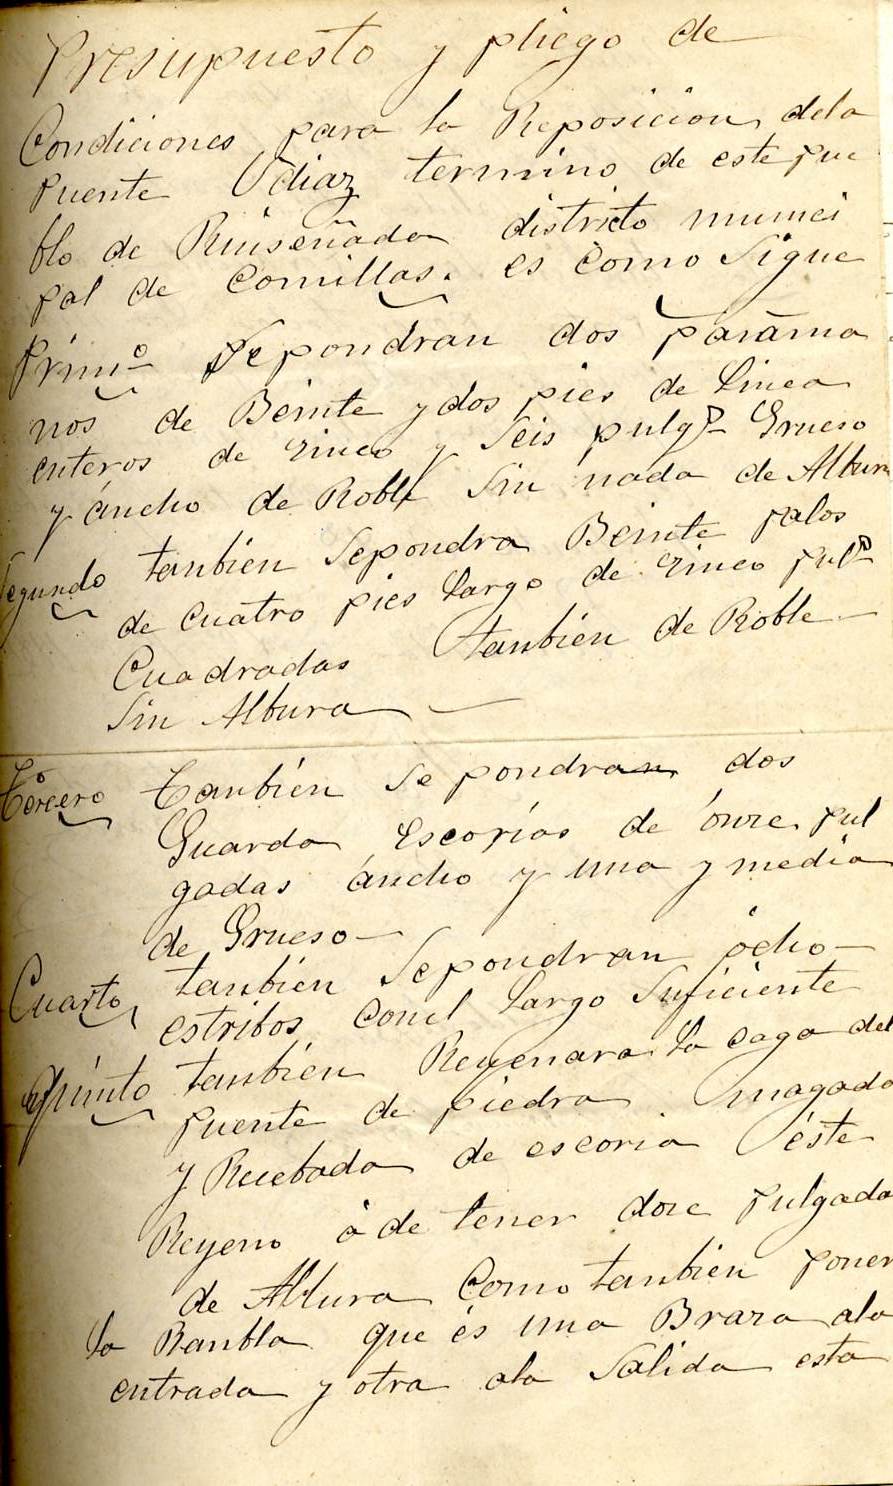 Presupuesto y pliego de
Condiciones para la Reposicion dela
puente Udiaz termino de este pue
blo de Ruiseñada districto munici
pal de Comillas. es como Sigue
Prim.º Sepondran dos parama
nos de Beinte y dos pies de Linea
enteros de zinco y Seis pulg.s Grueso
y áncho de Roble Sin nada de Albura
Segundo tanbien Sepondra Beinte palos
de cuatro pies Largo de zinco pul.s
Cuadradas tanbién de Roble
Sin Albura
Tercero Tanbién se pondran dos
Guarda Escorias de ónze pul
gadas áncho y una y media
de Grueso
Cuarto tanbién Sepondran ócho
estribos conel Largo Suficiente
Quinto tanbién Reyenara la caga del
puente de piedra magada
y Recebada de escoria éste
Reyeno á de tener doze pulgada
de Altura Como tanbién poner
la Ranbla que és una Braza ala
entrada y otra ala Salida esta